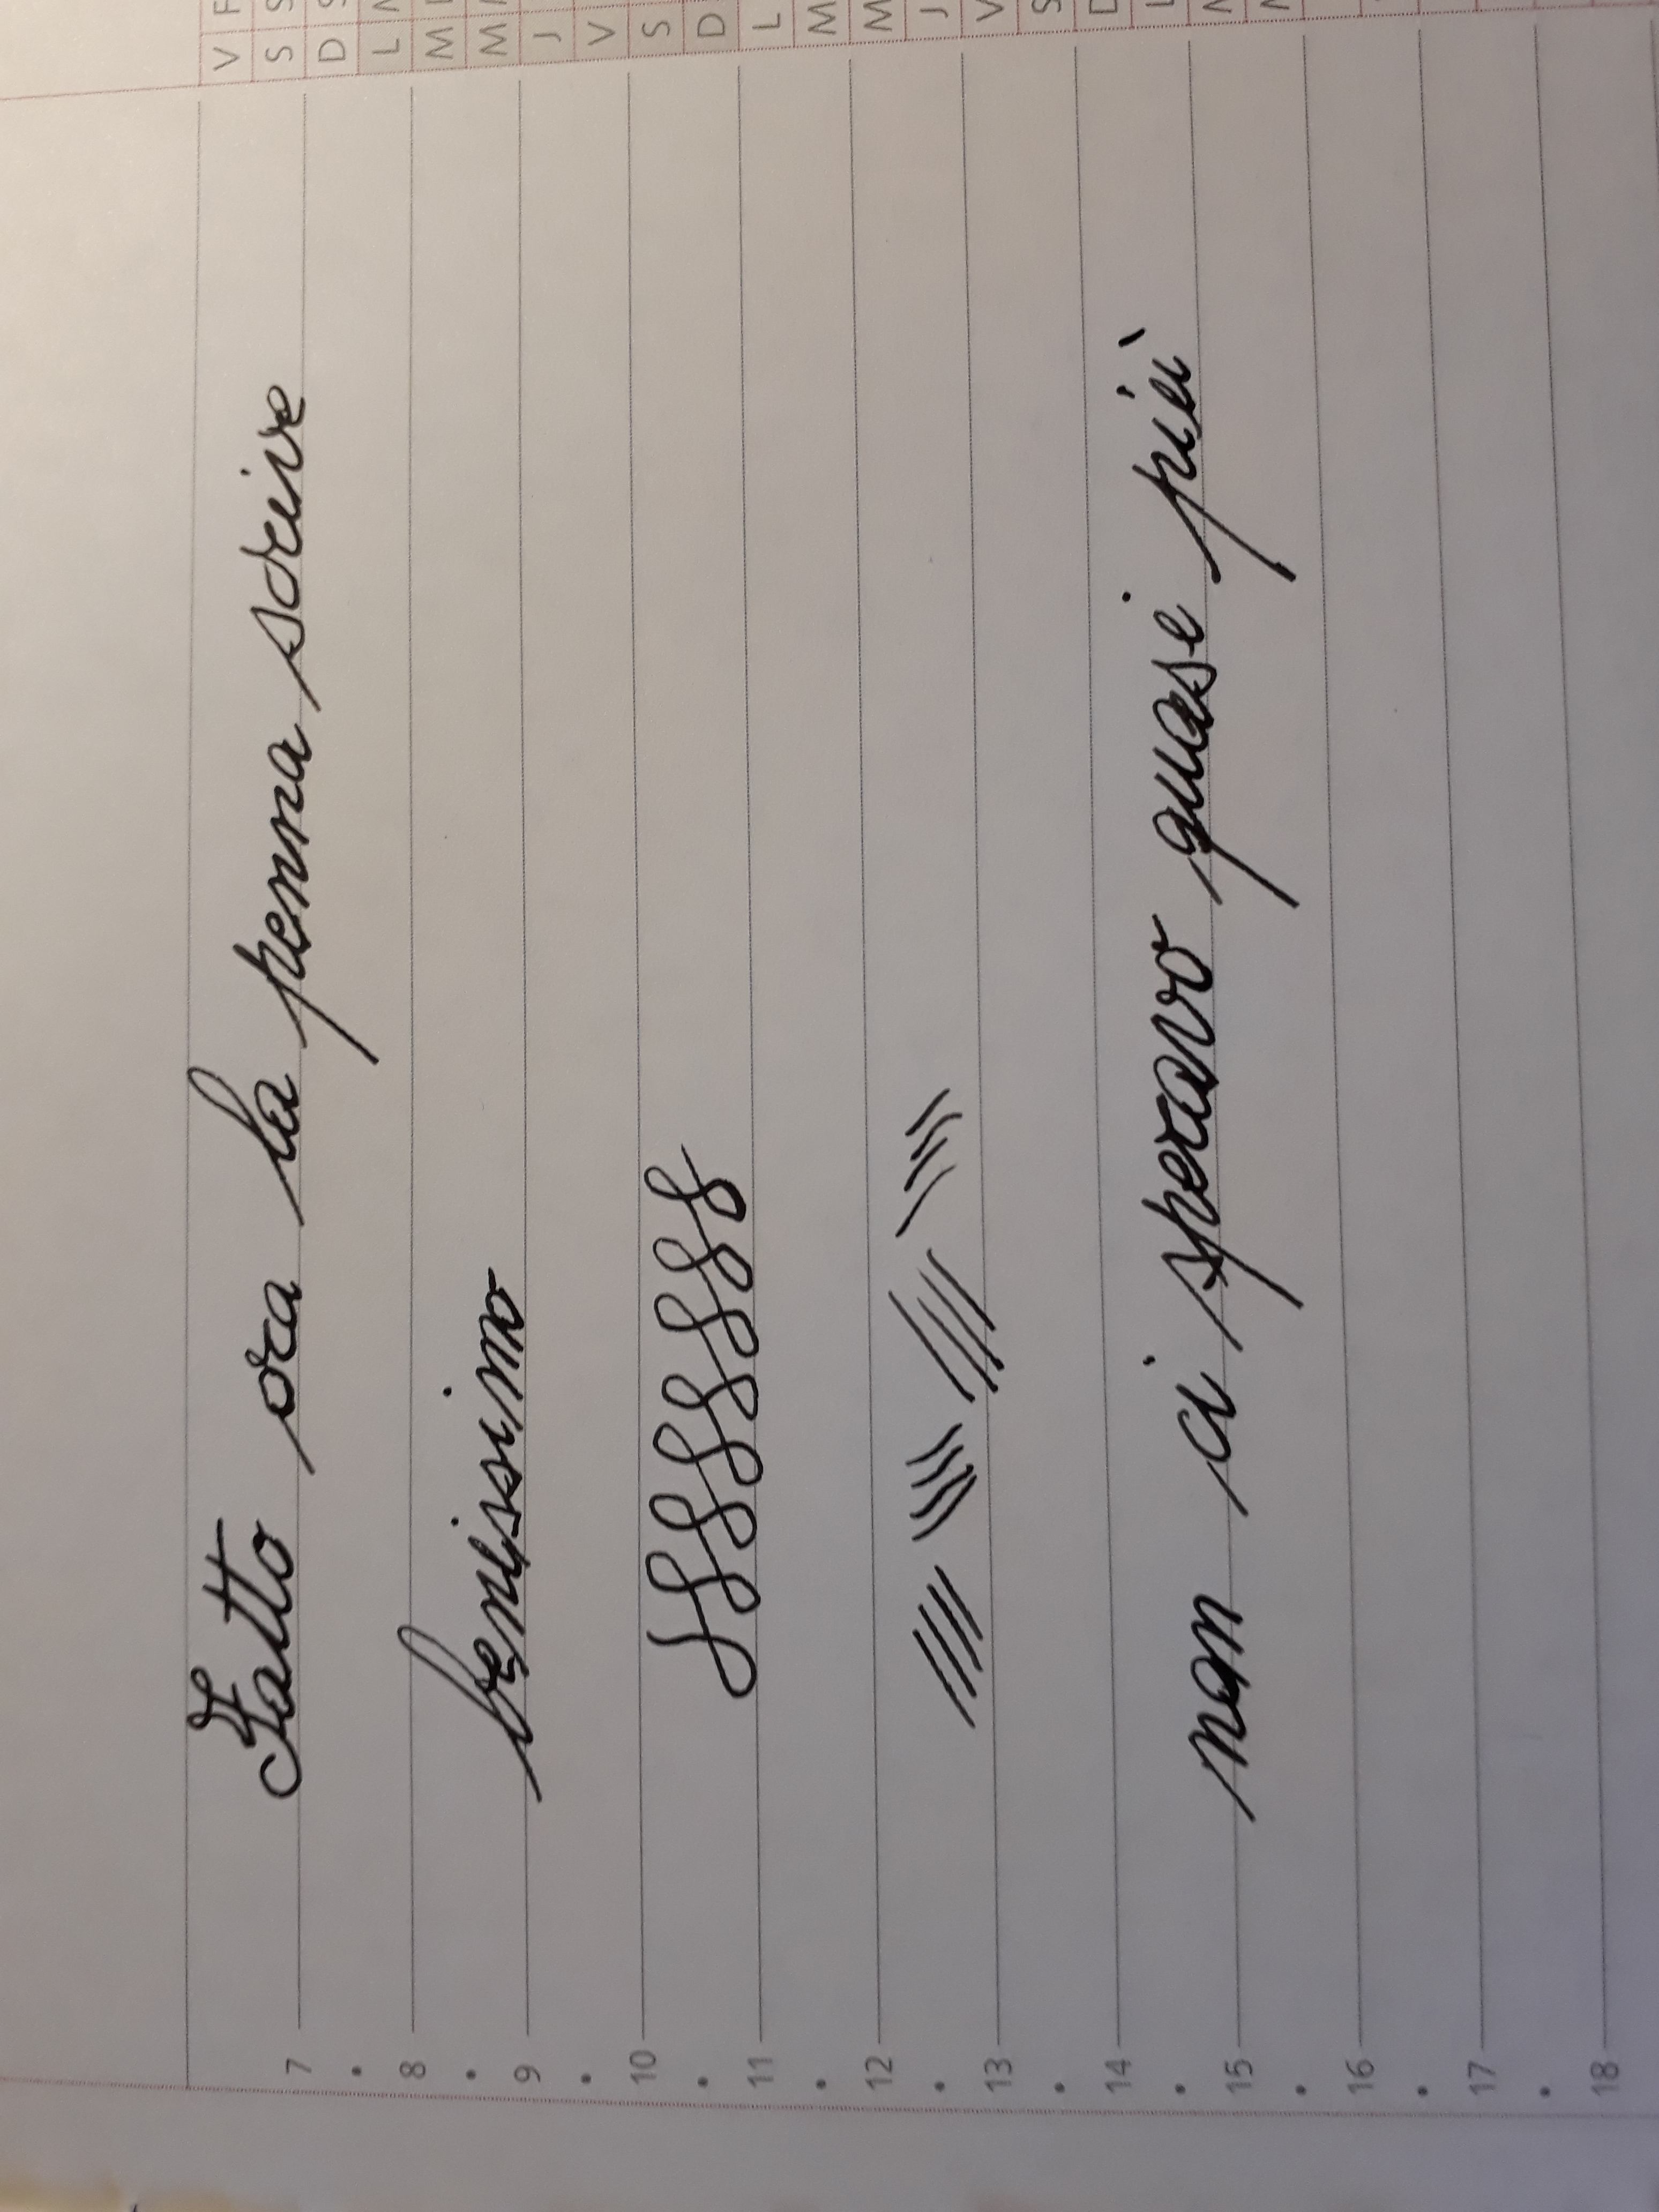 V F
S S
D S
L M
M
M
J
V
S
D
L
M
M
J
V
S
D
L
Fatto ora la penna scrive
7
8
benissimo
9
10
11
12
13
14
non ci speravo quasi più
15
16
17
18